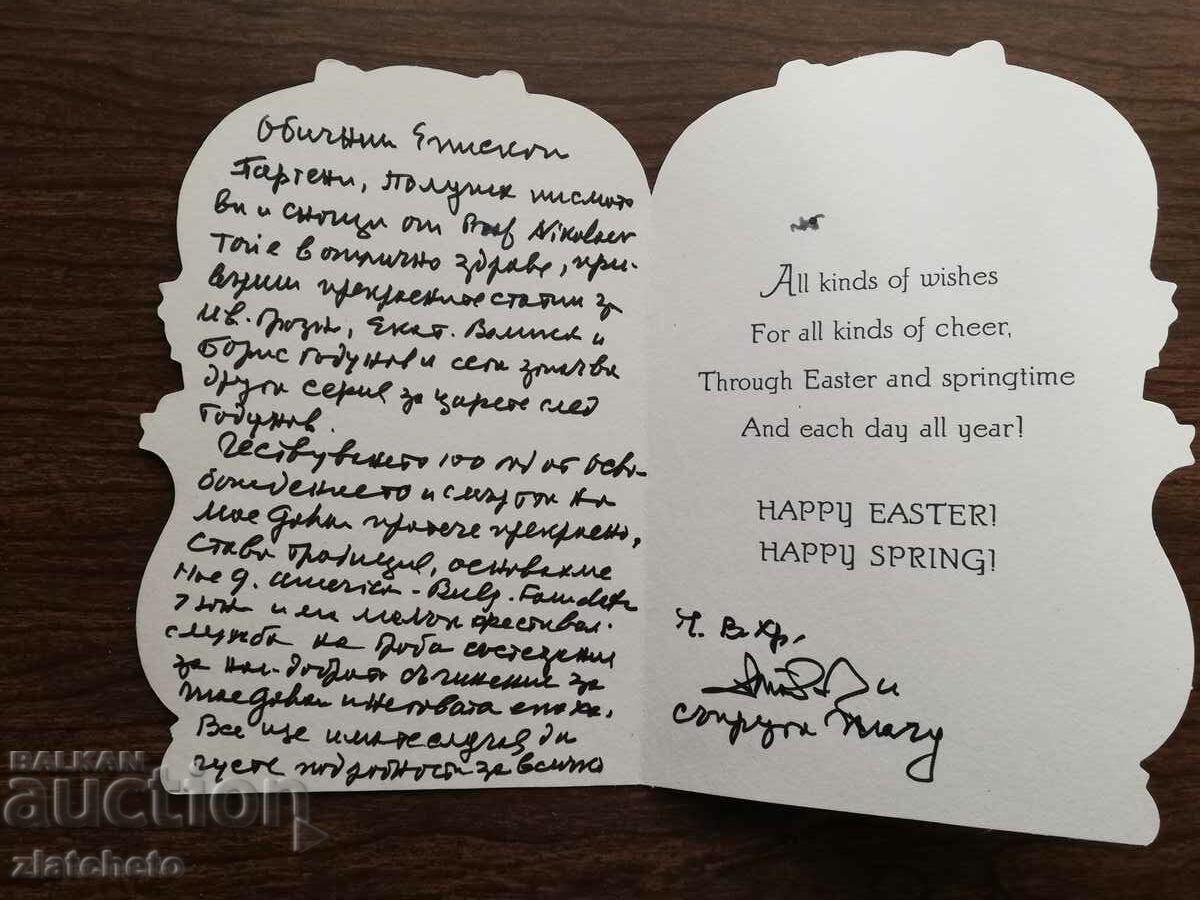 Обични Епископ
Партени, Получих писмото
ви и снощи от Prof Nikolaev
Той е в отлично здраве, при-
прекрасните статии за
Ив. Грозни, Екат. Велика и
Борис Годунов и сега започва
друга серия за царете след
Годунов.
Чествуването 100 год от осво-
бождението и смъртта на
Мас Даван протече прекрасно,
става традиция, основахме
America - Bulg. Foundat
и малък фестивал.
служба на гроба състезания
за най-добрите съчинения за
и неговата епоха.
Все ще имате случая да
чуете подробности за всичко
All kinds of wishes
For all kinds of cheer,
Through Easter and springtime
And each day all year!
HAPPY EASTER!
HAPPY SPRING!
Ч. В. Хр.
и
съпруга Mary
BALKAN
auction
zlatcheto